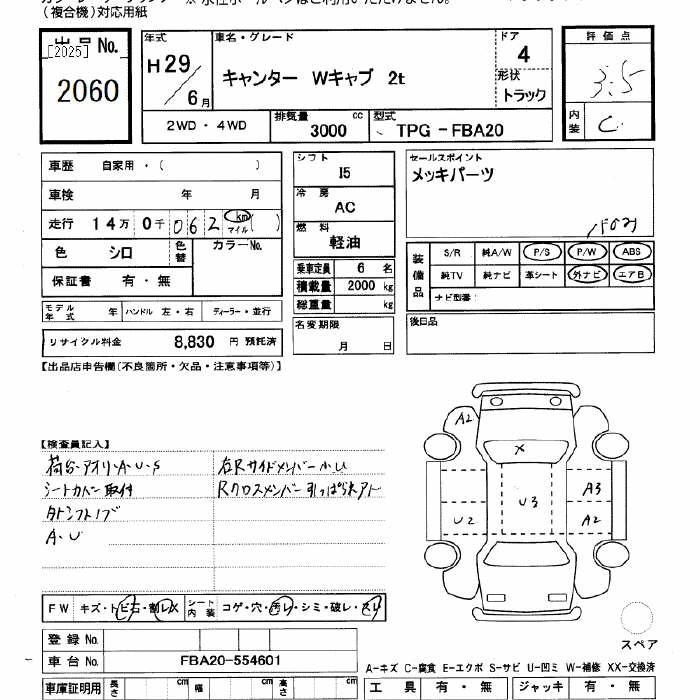 (複合機)対応用紙
出品 No.
[2025]
2060
年式
H29/6月
車名・グレード
キャンター Wキャブ 2t
ドア
4
形状
トラック
2WD・4WD
排気量
3000 cc
型式
TPG-FBA20
評価点
3.5
内装
C
車歴 自家用・( )
車検 年 月
走行 14万 0千 062 km マイル ( )
色 シロ 色替 カラーNo.
保証書 有・無
モデル年式 年 ハンドル 左・右 ディーラー・並行
リサイクル料金 8,830 円 預託済
シフト
I5
冷房
AC
燃料
軽油
乗車定員 6 名
積載量 2000 kg
総重量 kg
名変期限
月 日
セールスポイント
メッキパーツ
装備品
S/R 純A/W P/S P/W ABS
純TV 純ナビ 革シート 外ナビ エアB
ナビ型番:
後日品
【出品店申告欄(不良箇所・欠品・注意事項等)】
【検査員記入】
荷台・アオリ・A・U・S
シートカバー取付
外シフトノブ
A・U
左Rサイドメンバー小U
Rクロスメンバー引っぱられアト
A2
X
U3
A3
U2
A2
FW キズ・トビ石・割レX シート内装 コゲ・穴・汚レ・シミ・破レ・キレ
登録 No.
車台 No. FBA20-554601
車庫証明用 長さ cm 幅 cm 高さ cm
スペア
A-キズ C-腐食 E-エクボ S-サビ U-凹ミ W-補修 XX-交換済
工具 有・無 ジャッキ 有・無